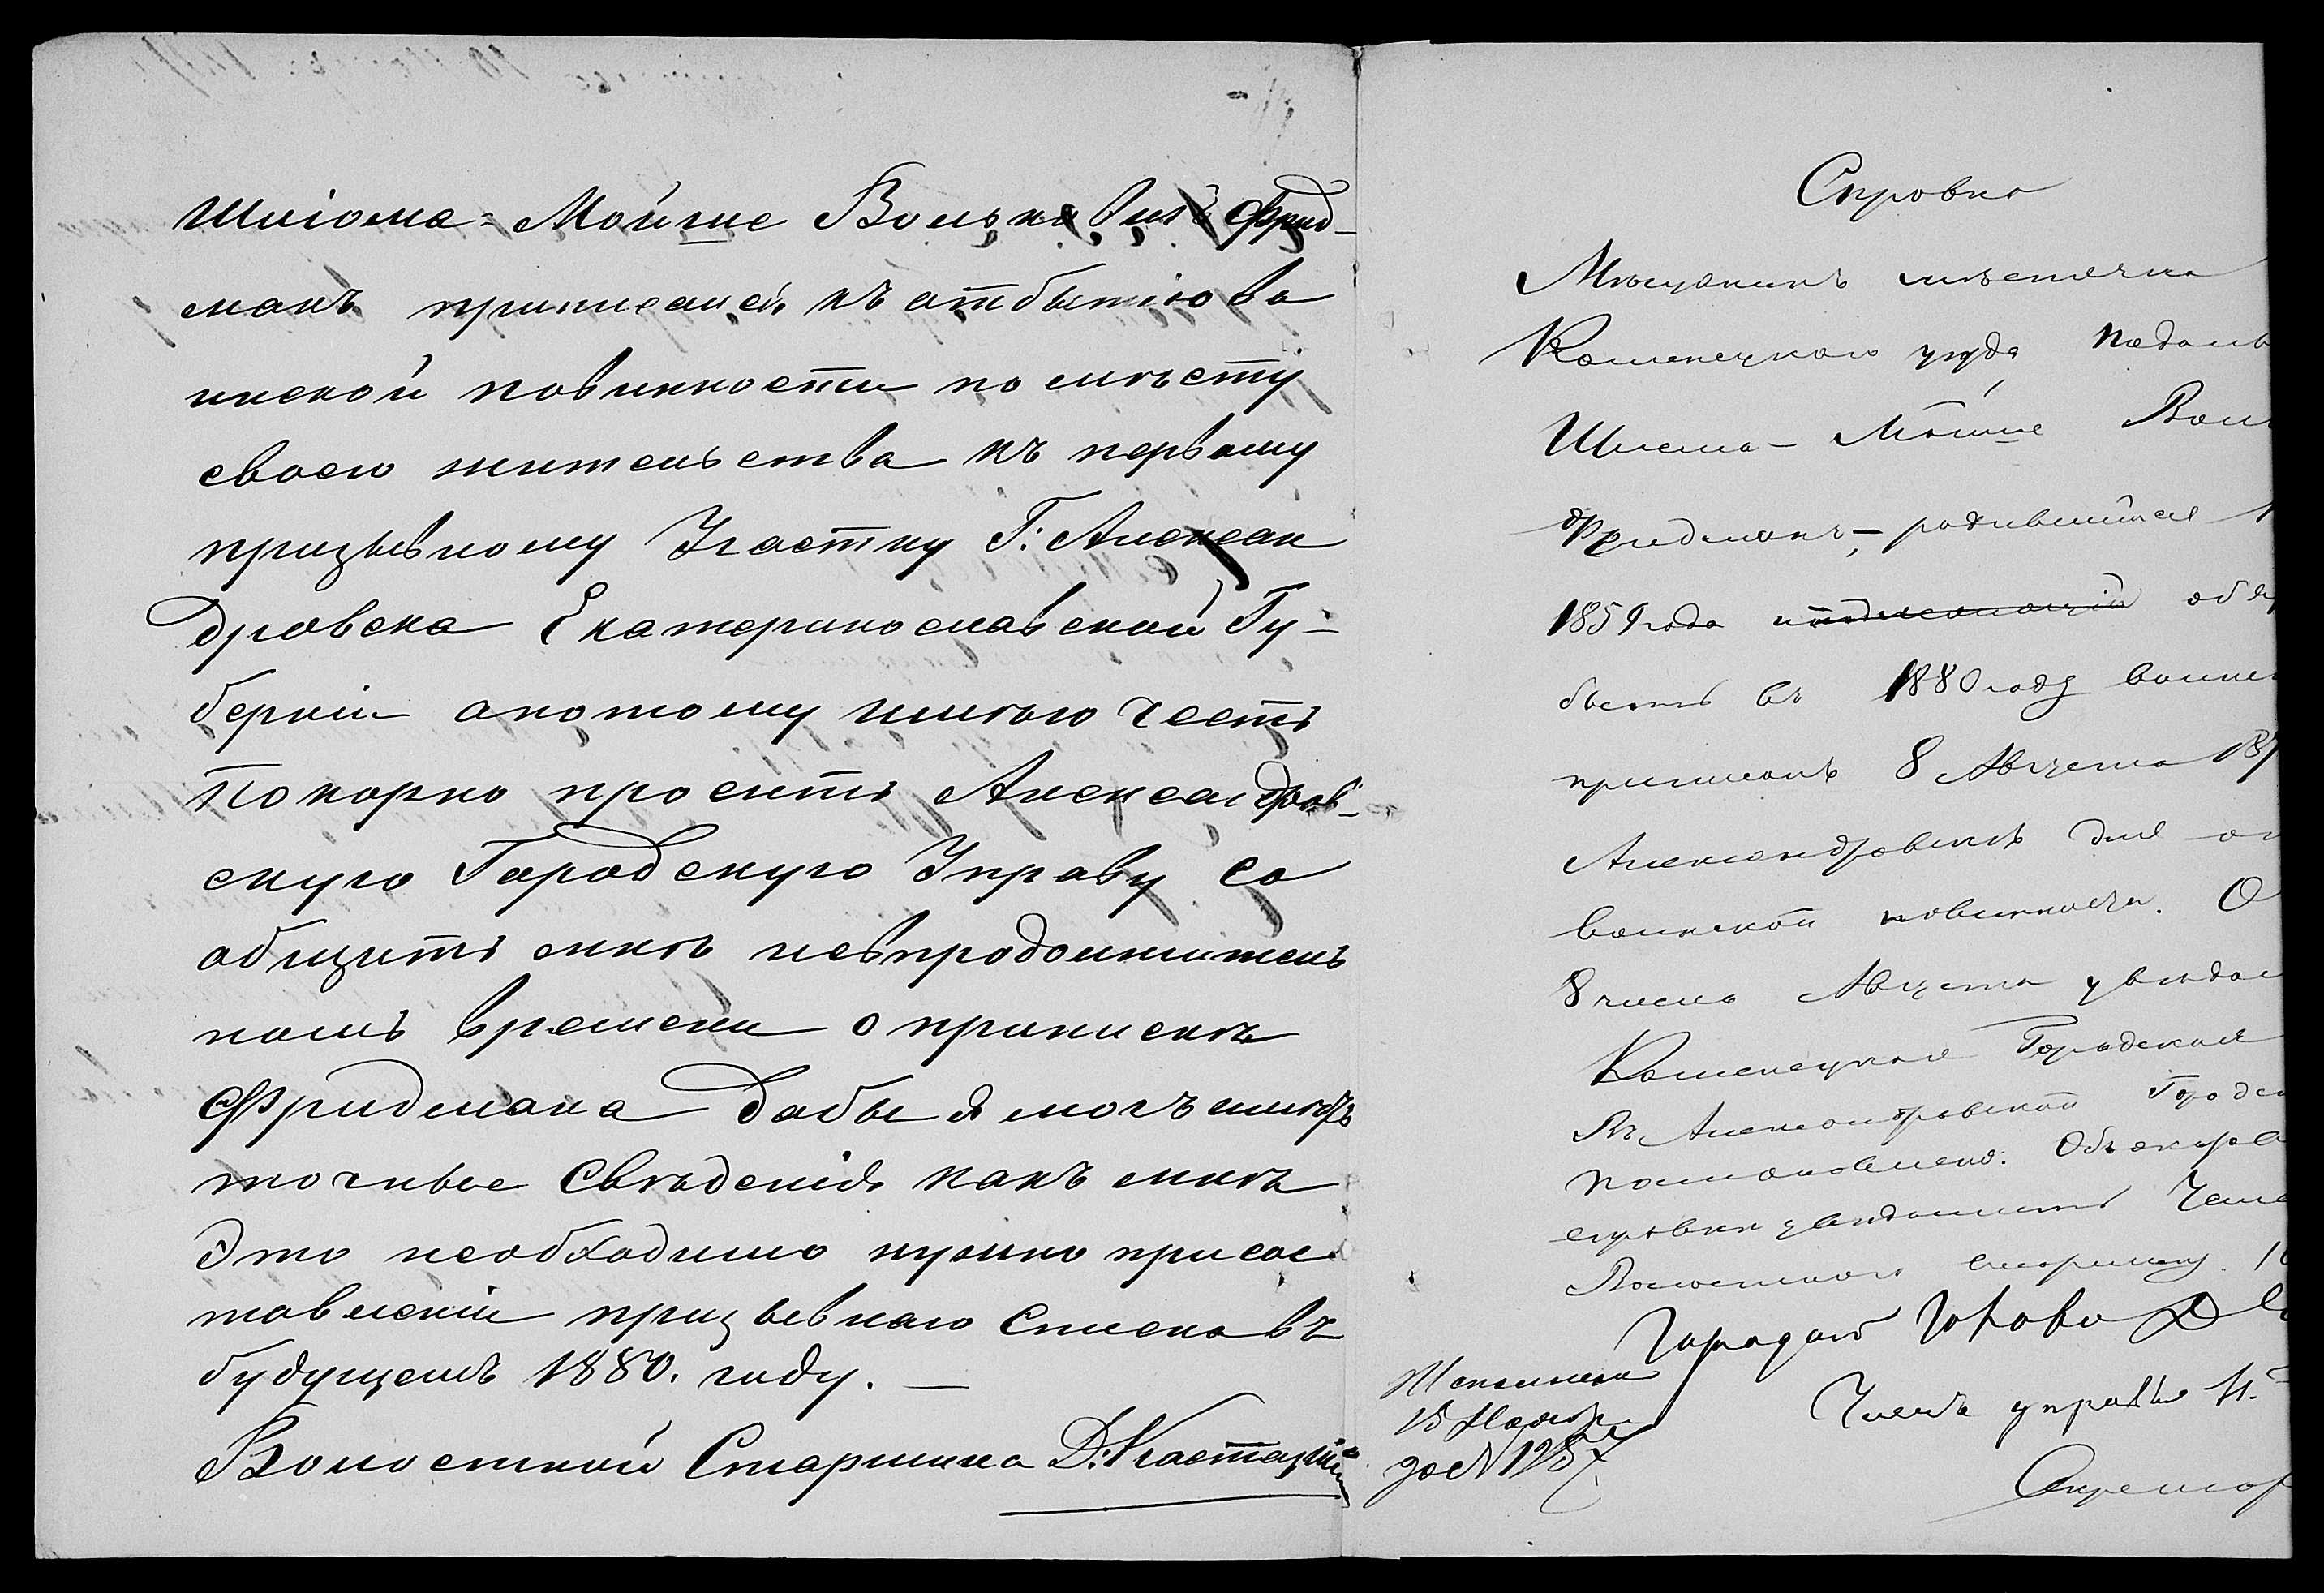 Шліома=Мойше Вольковичъ Фрид-
манъ приписался къ отбытію во
инской повинности по мѣсту
своего жительства къ первому
призывному Участку Г: Алексан
дровска Екатеринославской Гу-
берніи апотому имѣю честь
Покорно просить Александров-
скую Городскую Управу со
общить мнѣ невпродолжитель
номъ времени о припискѣ
Фридмана дабы я могъ имѣть
точные Свѣденія какъ мнѣ
Это необходимо нужно присос
тавленіи призывнаго Списка въ
будущемъ 1880. году. —
Волостной Старшина Д:
Справка
Мѣщанинъ мѣстечка
Каменецкаго уѣзда Подоль
Шлема-Мойше Вол
Фридманъ, – родившійся 1
1859 года подлежащій обяз
быть въ 1880 году воинс
приписанъ 8 Августа 187
Александровскъ для от
воинской повинности. О
8 числа Августа увѣдом
Каменецкая Городская
Въ Александровской Городс
постановлено:
справки увѣдомить
Волостного старшину. 1
Городской Голова
Исполнено
15 Ноябр
за № 1257
Членъ управы Н.
Секретар